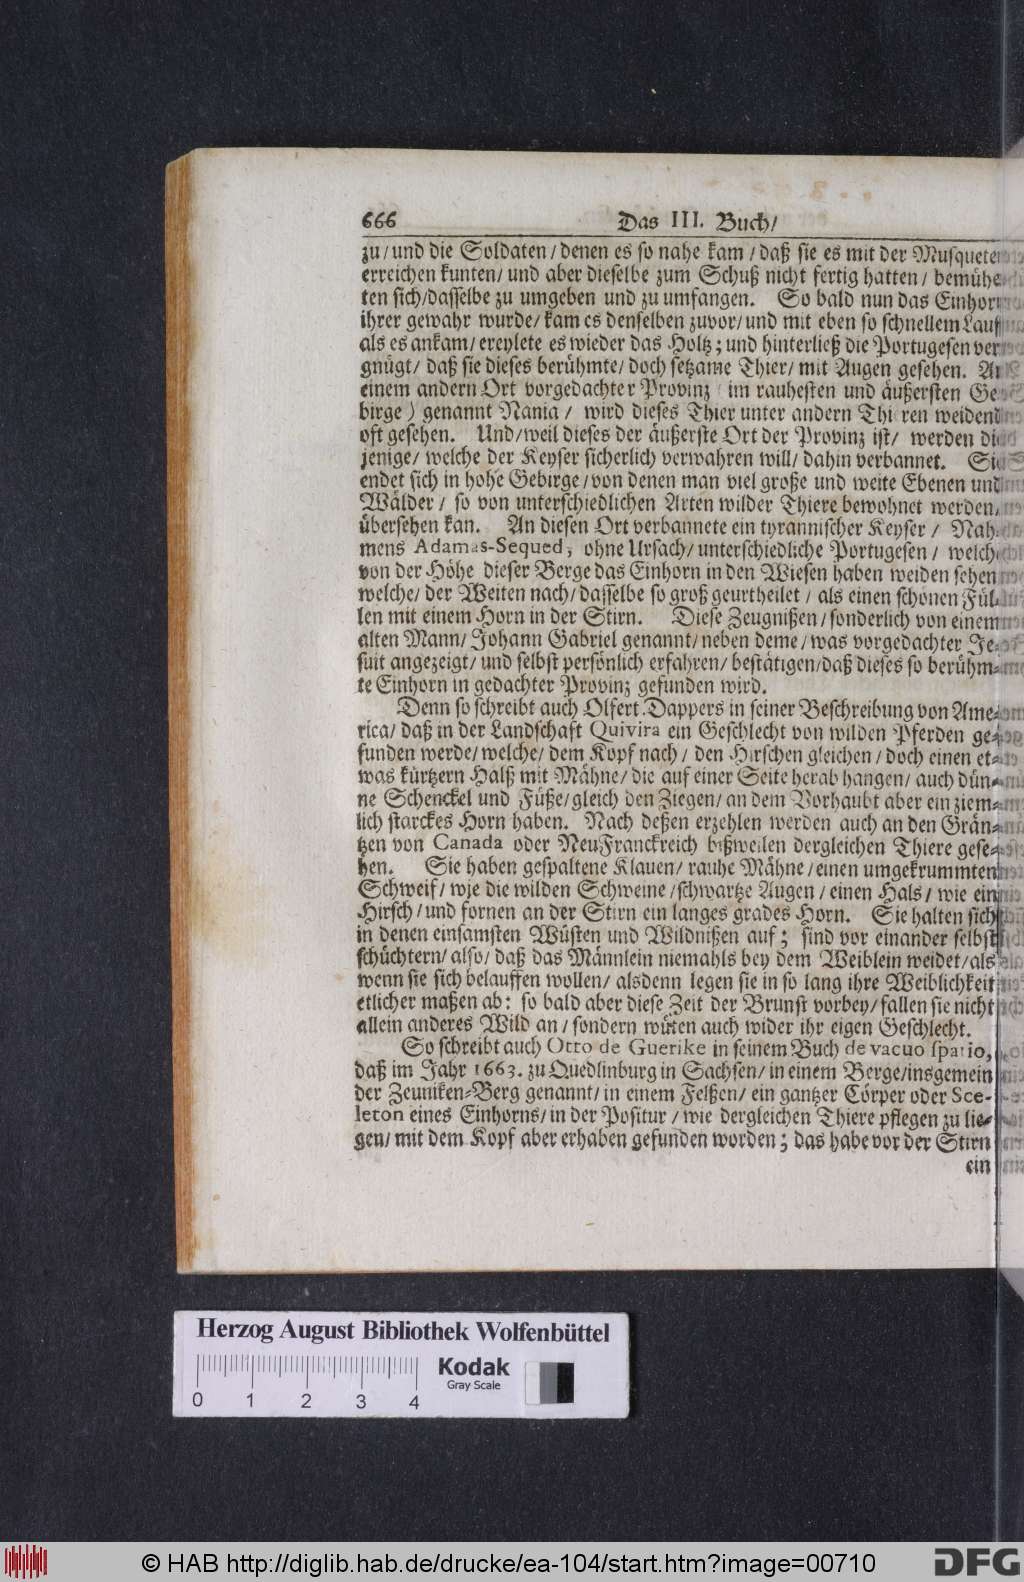 666 Das III. Buch/
zu/ und die Soldaten/ denen es so nahe kam/ daß sie es mit der Musqueten
erreichen kunten/ und aber dieselbe zum Schuß nicht fertig hatten/ bemühe-
ten sich/ dasselbe zu umgeben und zu umfangen. So bald nun das Einhorn
ihrer gewahr wurde/ kam es denselben zuvor/ und mit eben so schnellem Lauf
als es ankam/ ereylete es wieder das Holtz; und hinterließ die Portugesen ver
gnügt/ daß sie dieses berühmte/ doch seltzame Thier/ mit Augen gesehen. An
einem andern Ort vorgedachter Provinz im rauhesten und äußersten Ge-
birge) genannt Nania/ wird dieses Thier unter andern Thi ren weidend
oft gesehen. Und/ weil dieses der äußerste Ort der Provinz ist/ werden die
jenige/ welche der Keyser sicherlich verwahren will/ dahin verbannet. Sie
endet sich in hohe Gebirge/ von denen man viel große und weite Ebenen und
Wälder/ so von unterschiedlichen Arten wilder Thiere bewohnet werden,
übersehen kan. An diesen Ort verbannete ein tyrannischer Keyser/ Nah-
mens Adamas-Sequed, ohne Ursach/ unterschiedliche Portugesen/ welche
von der Höhe dieser Berge das Einhorn in den Wiesen haben weiden sehen
welche/ der Weiten nach/ dasselbe so groß geurtheilet/ als einen schönen Fül-
len mit einem Horn in der Stirn. Diese Zeugnißen/ sonderlich von einem
alten Mann/ Johann Gabriel genannt/ neben deme/ was vorgedachter Je-
suit angezeigt/ und selbst persönlich erfahren/ bestätigen/ daß dieses so berühm-
te Einhorn in gedachter Provinz gefunden wird.
Denn so schreibt auch Olfert Dappers in seiner Beschreibung von Ame-
rica/ daß in der Landschaft Quivira ein Geschlecht von wilden Pferden ge-
funden werde/ welche/ dem Kopf nach/ den Hirschen gleichen/ doch einen et-
was kürtzern Halß mit Mähne/ die auf einer Seite herab hangen/ auch dün-
ne Schenckel und Füße/ gleich den Ziegen/ an dem Vorhaubt aber ein ziem-
lich starckes Horn haben. Nach deßen erzehlen werden auch an den Grän-
tzen von Canada oder NeuFranckreich bißweilen dergleichen Thiere gese-
hen. Sie haben gespaltene Klauen/ rauhe Mähne/ einen umgekrummten
Schweif/ wie die wilden Schweine/ schwartze Augen/ einen Hals/ wie ein
Hirsch/ und fornen an der Stirn ein langes grades Horn. Sie halten sich
in denen einsamsten Wüsten und Wildnißen auf; sind vor einander selbst
schüchtern/ also/ daß das Männlein niemahls bey dem Weiblein weidet/ als
wenn sie sich belauffen wollen/ alsdenn legen sie in so lang ihre Weiblichkeit
etlicher maßen ab: so bald aber diese Zeit der Brunst vorbey/ fallen sie nicht
allein anderes Wild an/ sondern wüten auch wider ihr eigen Geschlecht.
So schreibt auch Otto de Guerike in seinem Buch de vacuo spatio,
daß im Jahr 1663. zu Quedlinburg in Sachsen/ in einem Berge/ insgemein
der Zeuniken-Berg genannt/ in einem Felßen/ ein gantzer Cörper oder Sce-
leton eines Einhorns/ in der Positur/ wie dergleichen Thiere pflegen zu lie-
gen/ mit dem Kopf aber erhaben gefunden worden; das habe vor der Stirn
ein
Herzog August Bibliothek Wolfenbüttel
Kodak
Gray Scale
0 1 2 3 4
© HAB http://diglib.hab.de/drucke/ea-104/start.htm?image=00710
DFG